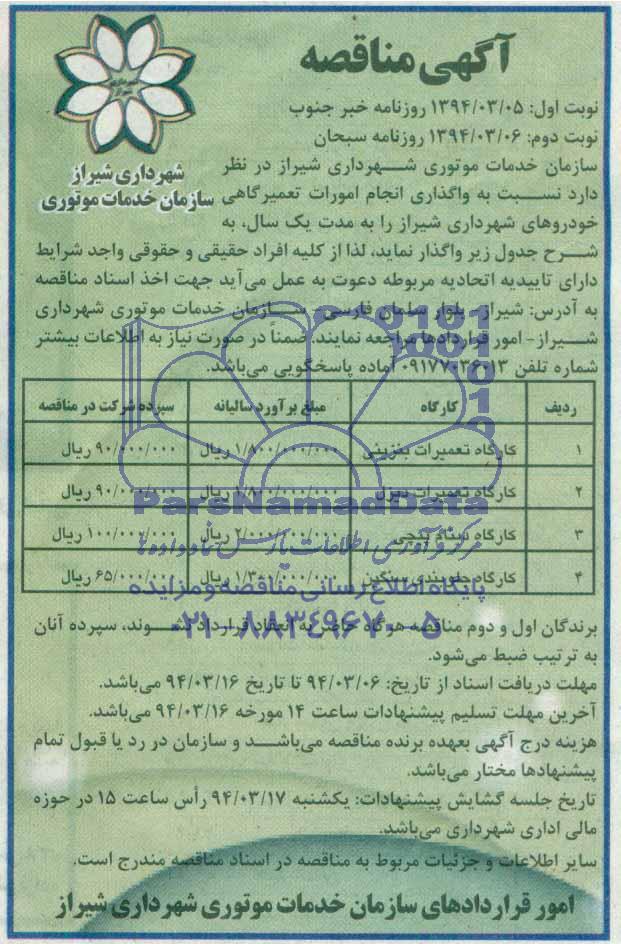 آگهی مناقصه
شهرداری شیراز
سازمان خدمات موتوری
نوبت اول: ۱۳۹۴/۰۳/۰۵ روزنامه خبر جنوب
نوبت دوم: ۱۳۹۴/۰۳/۰۶ روزنامه سبحان
سازمان خدمات موتوری شهرداری شیراز در نظر
دارد نسبت به واگذاری انجام امورات تعمیرگاهی
خودروهای شهرداری شیراز را به مدت یک سال، به
شرح جدول زیر واگذار نماید، لذا از کلیه افراد حقیقی و حقوقی واجد شرایط
دارای تاییدیه اتحادیه مربوطه دعوت به عمل می‌آید جهت اخذ اسناد مناقصه
به آدرس: شیراز - بلوار سلمان فارسی - سازمان خدمات موتوری شهرداری
شیراز- امور قراردادها مراجعه نمایند. ضمناً در صورت نیاز به اطلاعات بیشتر
شماره تلفن ۰۹۱۷۷۰۳۶۰۱۳ آماده پاسخگویی می‌باشد.
ردیف کارگاه مبلغ برآورد سالیانه سپرده شرکت در مناقصه
۱ کارگاه تعمیرات بنزینی ۱/۸۰۰/۰۰۰/۰۰۰ ریال ۹۰/۰۰۰/۰۰۰ ریال
۲ کارگاه تعمیرات دیزل ۱/۸۰۰/۰۰۰/۰۰۰ ریال ۹۰/۰۰۰/۰۰۰ ریال
۳ کارگاه ۲/۰۰۰/۰۰۰/۰۰۰ ریال ۱۰۰/۰۰۰/۰۰۰ ریال
۴ کارگاه جلوبندی سنگین ۱/۳۰۰/۰۰۰/۰۰۰ ریال ۶۵/۰۰۰/۰۰۰ ریال
ParsNamadData
مرکز فرآوری اطلاعات پارس نماد داده ها
پایگاه اطلاع رسانی مناقصه و مزایده
۰۲۱-۸۸۳۴۹۶۷۰-۵
برندگان اول و دوم مناقصه هرگاه حاضر به انعقاد قرارداد نشوند، سپرده آنان
به ترتیب ضبط می‌شود.
مهلت دریافت اسناد از تاریخ: ۹۴/۰۳/۰۶ تا تاریخ ۹۴/۰۳/۱۶ می‌باشد.
آخرین مهلت تسلیم پیشنهادات ساعت ۱۴ مورخه ۹۴/۰۳/۱۶ می‌باشد.
هزینه درج آگهی بعهده برنده مناقصه می‌باشد و سازمان در رد یا قبول تمام
پیشنهادها مختار می‌باشد.
تاریخ جلسه گشایش پیشنهادات: یکشنبه ۹۴/۰۳/۱۷ رأس ساعت ۱۵ در حوزه
مالی اداری شهرداری می‌باشد.
سایر اطلاعات و جزئیات مربوط به مناقصه در اسناد مناقصه مندرج است.
امور قراردادهای سازمان خدمات موتوری شهرداری شیراز